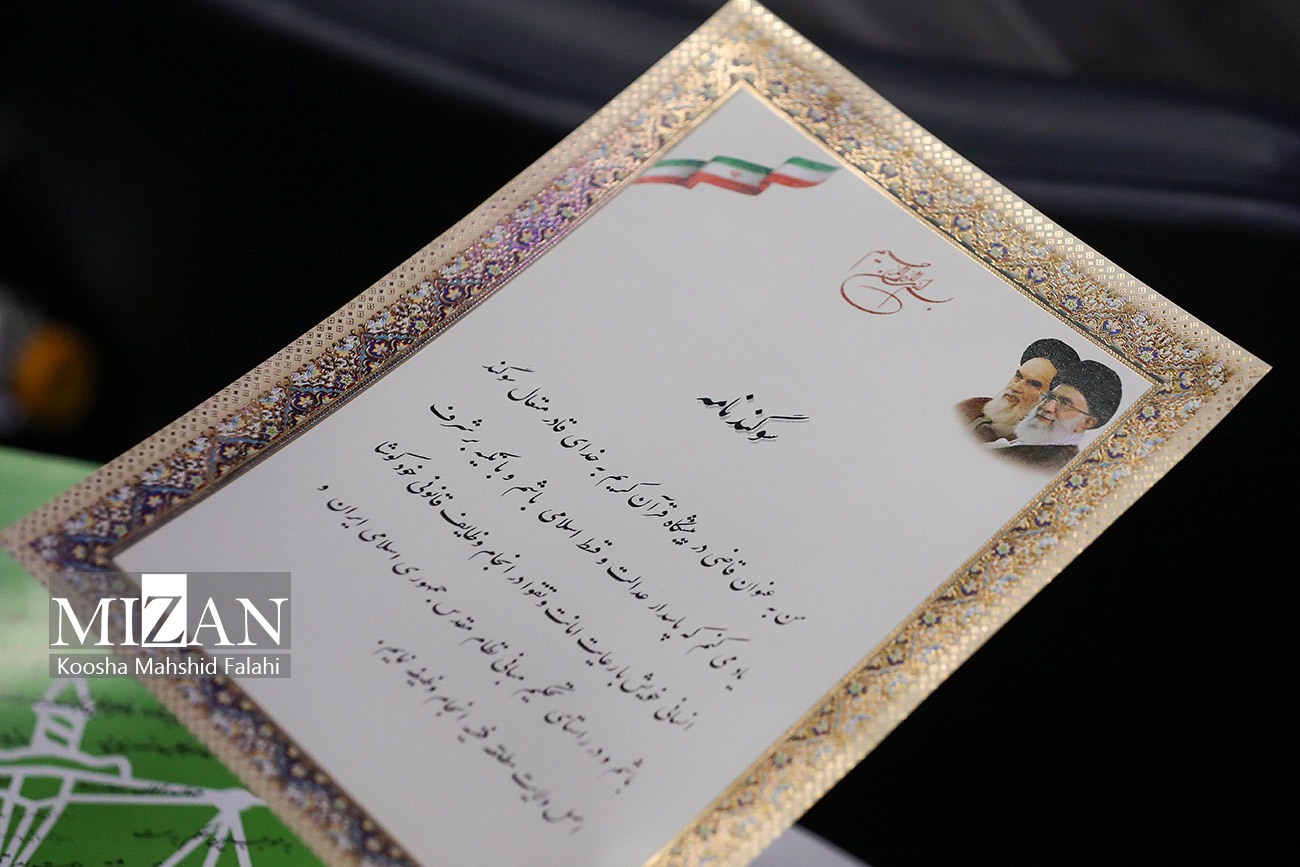 بسم الله الرحمن الرحیم
سوگندنامه
من به عنوان قاضی در پیشگاه قرآن کریم به خدای قادر متعال سوگند
یاد می کنم که پاسدار عدالت و قسط اسلامی باشم و با تکیه بر شرف
انسانی خویش با رعایت امانت و تقوا در انجام وظایف قانونی خود کوشا
باشم و در راستای تحکیم مبانی نظام مقدس جمهوری اسلامی ایران و
اصل ولایت مطلقه فقیه انجام وظیفه نمایم.
MIZAN
Koosha Mahshid Falahi